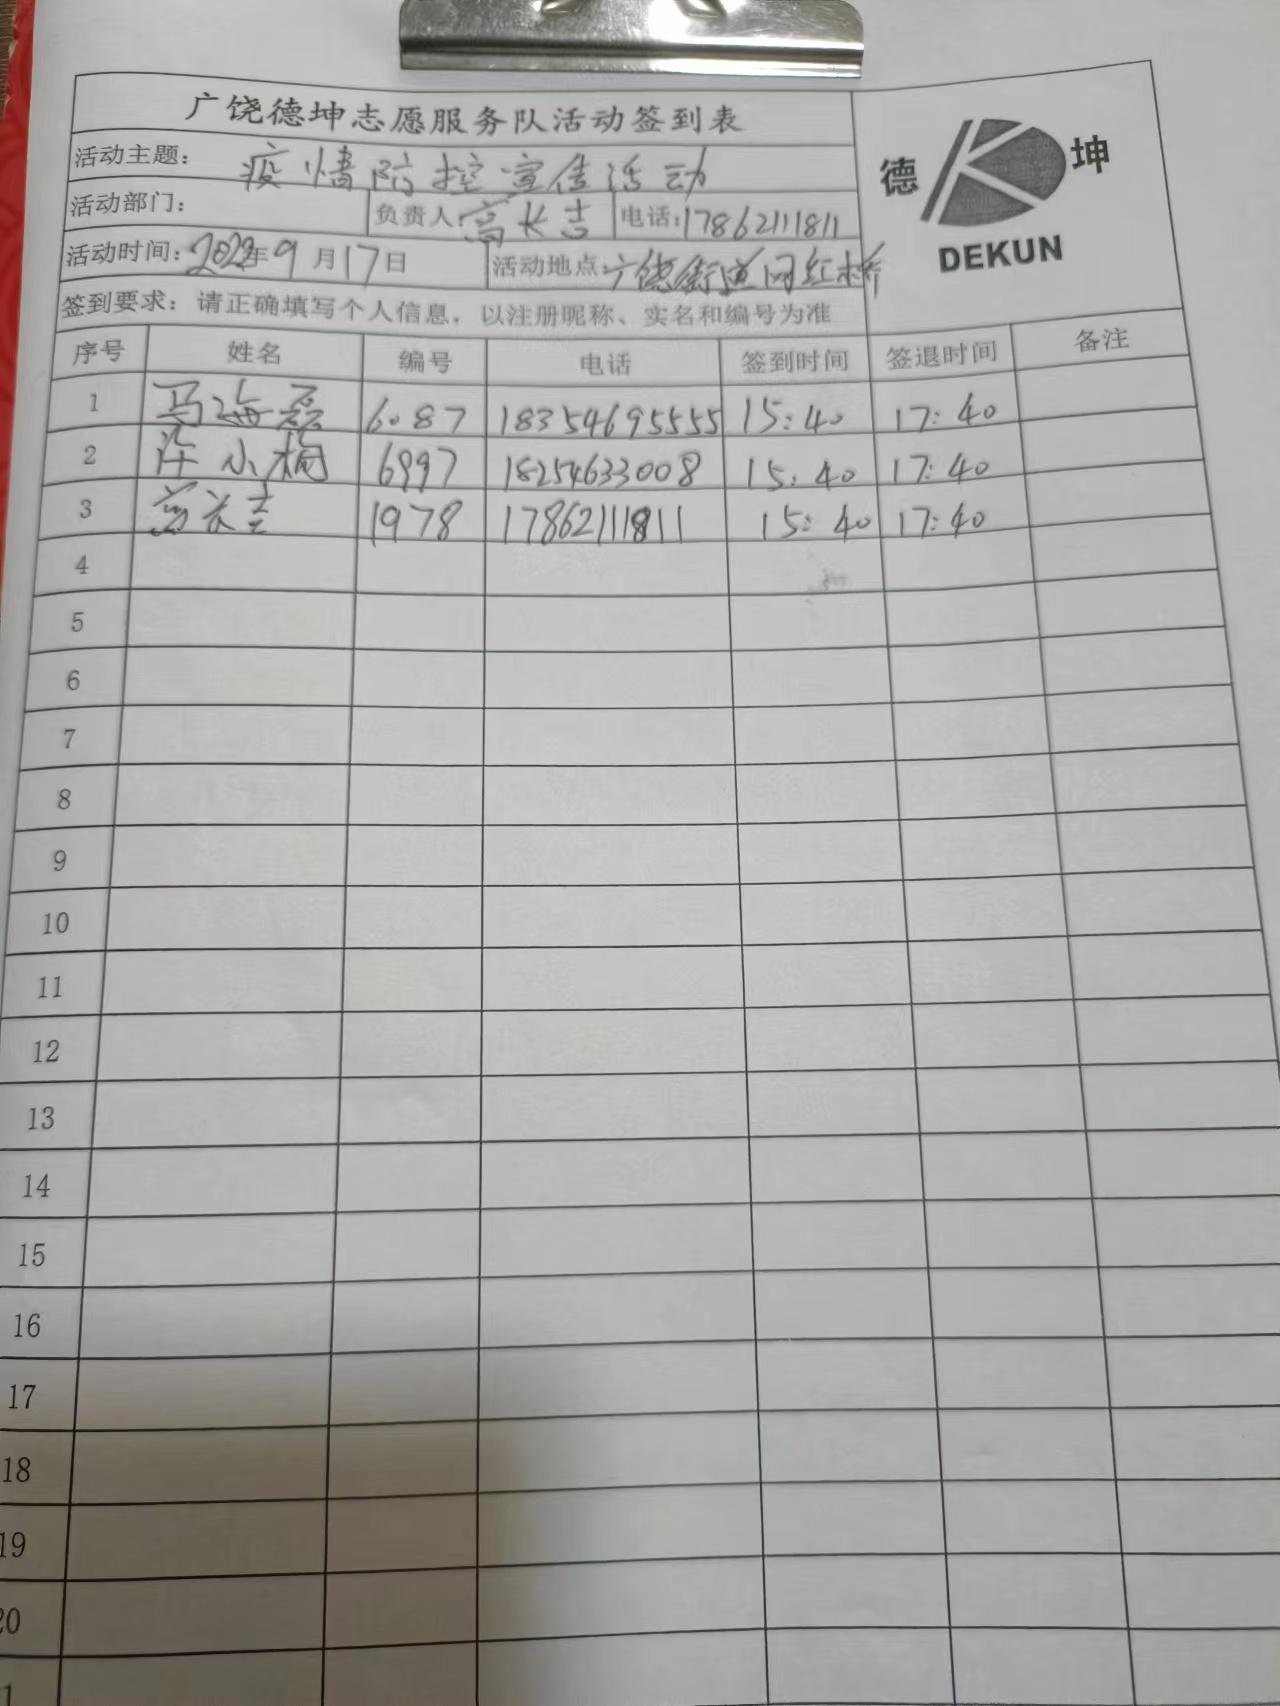 广饶德坤志愿服务队活动签到表
德 坤
DEKUN
活动主题：疫情防控宣传活动
活动部门： 负责人 高长吉 电话:17862111811
活动时间：2022年9月17日 活动地点:广饶街道网红桥
签到要求：请正确填写个人信息，以注册昵称、实名和编号为准
序号 姓名 编号 电话 签到时间 签退时间 备注
1 马海磊 6087 18354695555 15:40 17:40
2 许小梅 6997 18254633008 15:40 17:40
3 高长吉 1978 17862111811 15:40 17:40
4
5
6
7
8
9
10
11
12
13
14
15
16
17
18
19
20